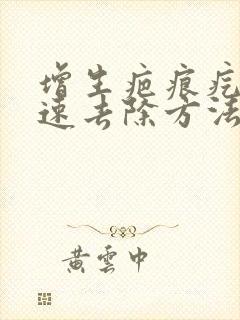 增生疤痕疙
速去除方法
黄云中